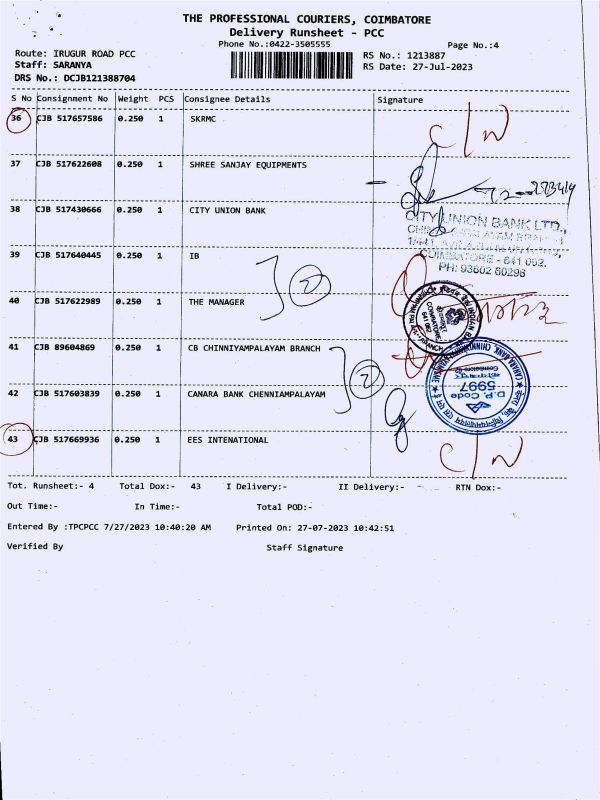 THE PROFESSIONAL COURIERS, COIMBATORE
Delivery Runsheet - PCC
Phone No.:0422-3505555
Page No.:4
Route: IRUGUR ROAD PCC
RS No.: 1213887
Staff: SARANYA
RS Date: 27-Jul-2023
DRS No.: DCJB121388704
S No Consignment No Weight PCS Consignee Details Signature
36 CJB 517657586 0.250 1 SKRMC C/N
37 CJB 517622608 0.250 1 SHREE SANJAY EQUIPMENTS
38 CJB 517430666 0.250 1 CITY UNION BANK
CITY UNION BANK LTD.,
COIMBATORE - 641 062.
PH: 93602 60296
39 CJB 517640445 0.250 1 IB
2
40 CJB 517622989 0.250 1 THE MANAGER
COIMBATORE
41 CJB 89604869 0.250 1 CB CHINNIYAMPALAYAM BRANCH
2
D.P. Code
5997
CANARA BANK
42 CJB 517603839 0.250 1 CANARA BANK CHENNIAMPALAYAM
43 CJB 517669936 0.250 1 EES INTENATIONAL C/N
Tot. Runsheet:- 4 Total Dox:- 43 I Delivery:- II Delivery:- RTN Dox:-
Out Time:- In Time:- Total POD:-
Entered By :TPCPCC 7/27/2023 10:40:20 AM Printed On: 27-07-2023 10:42:51
Verified By Staff Signature